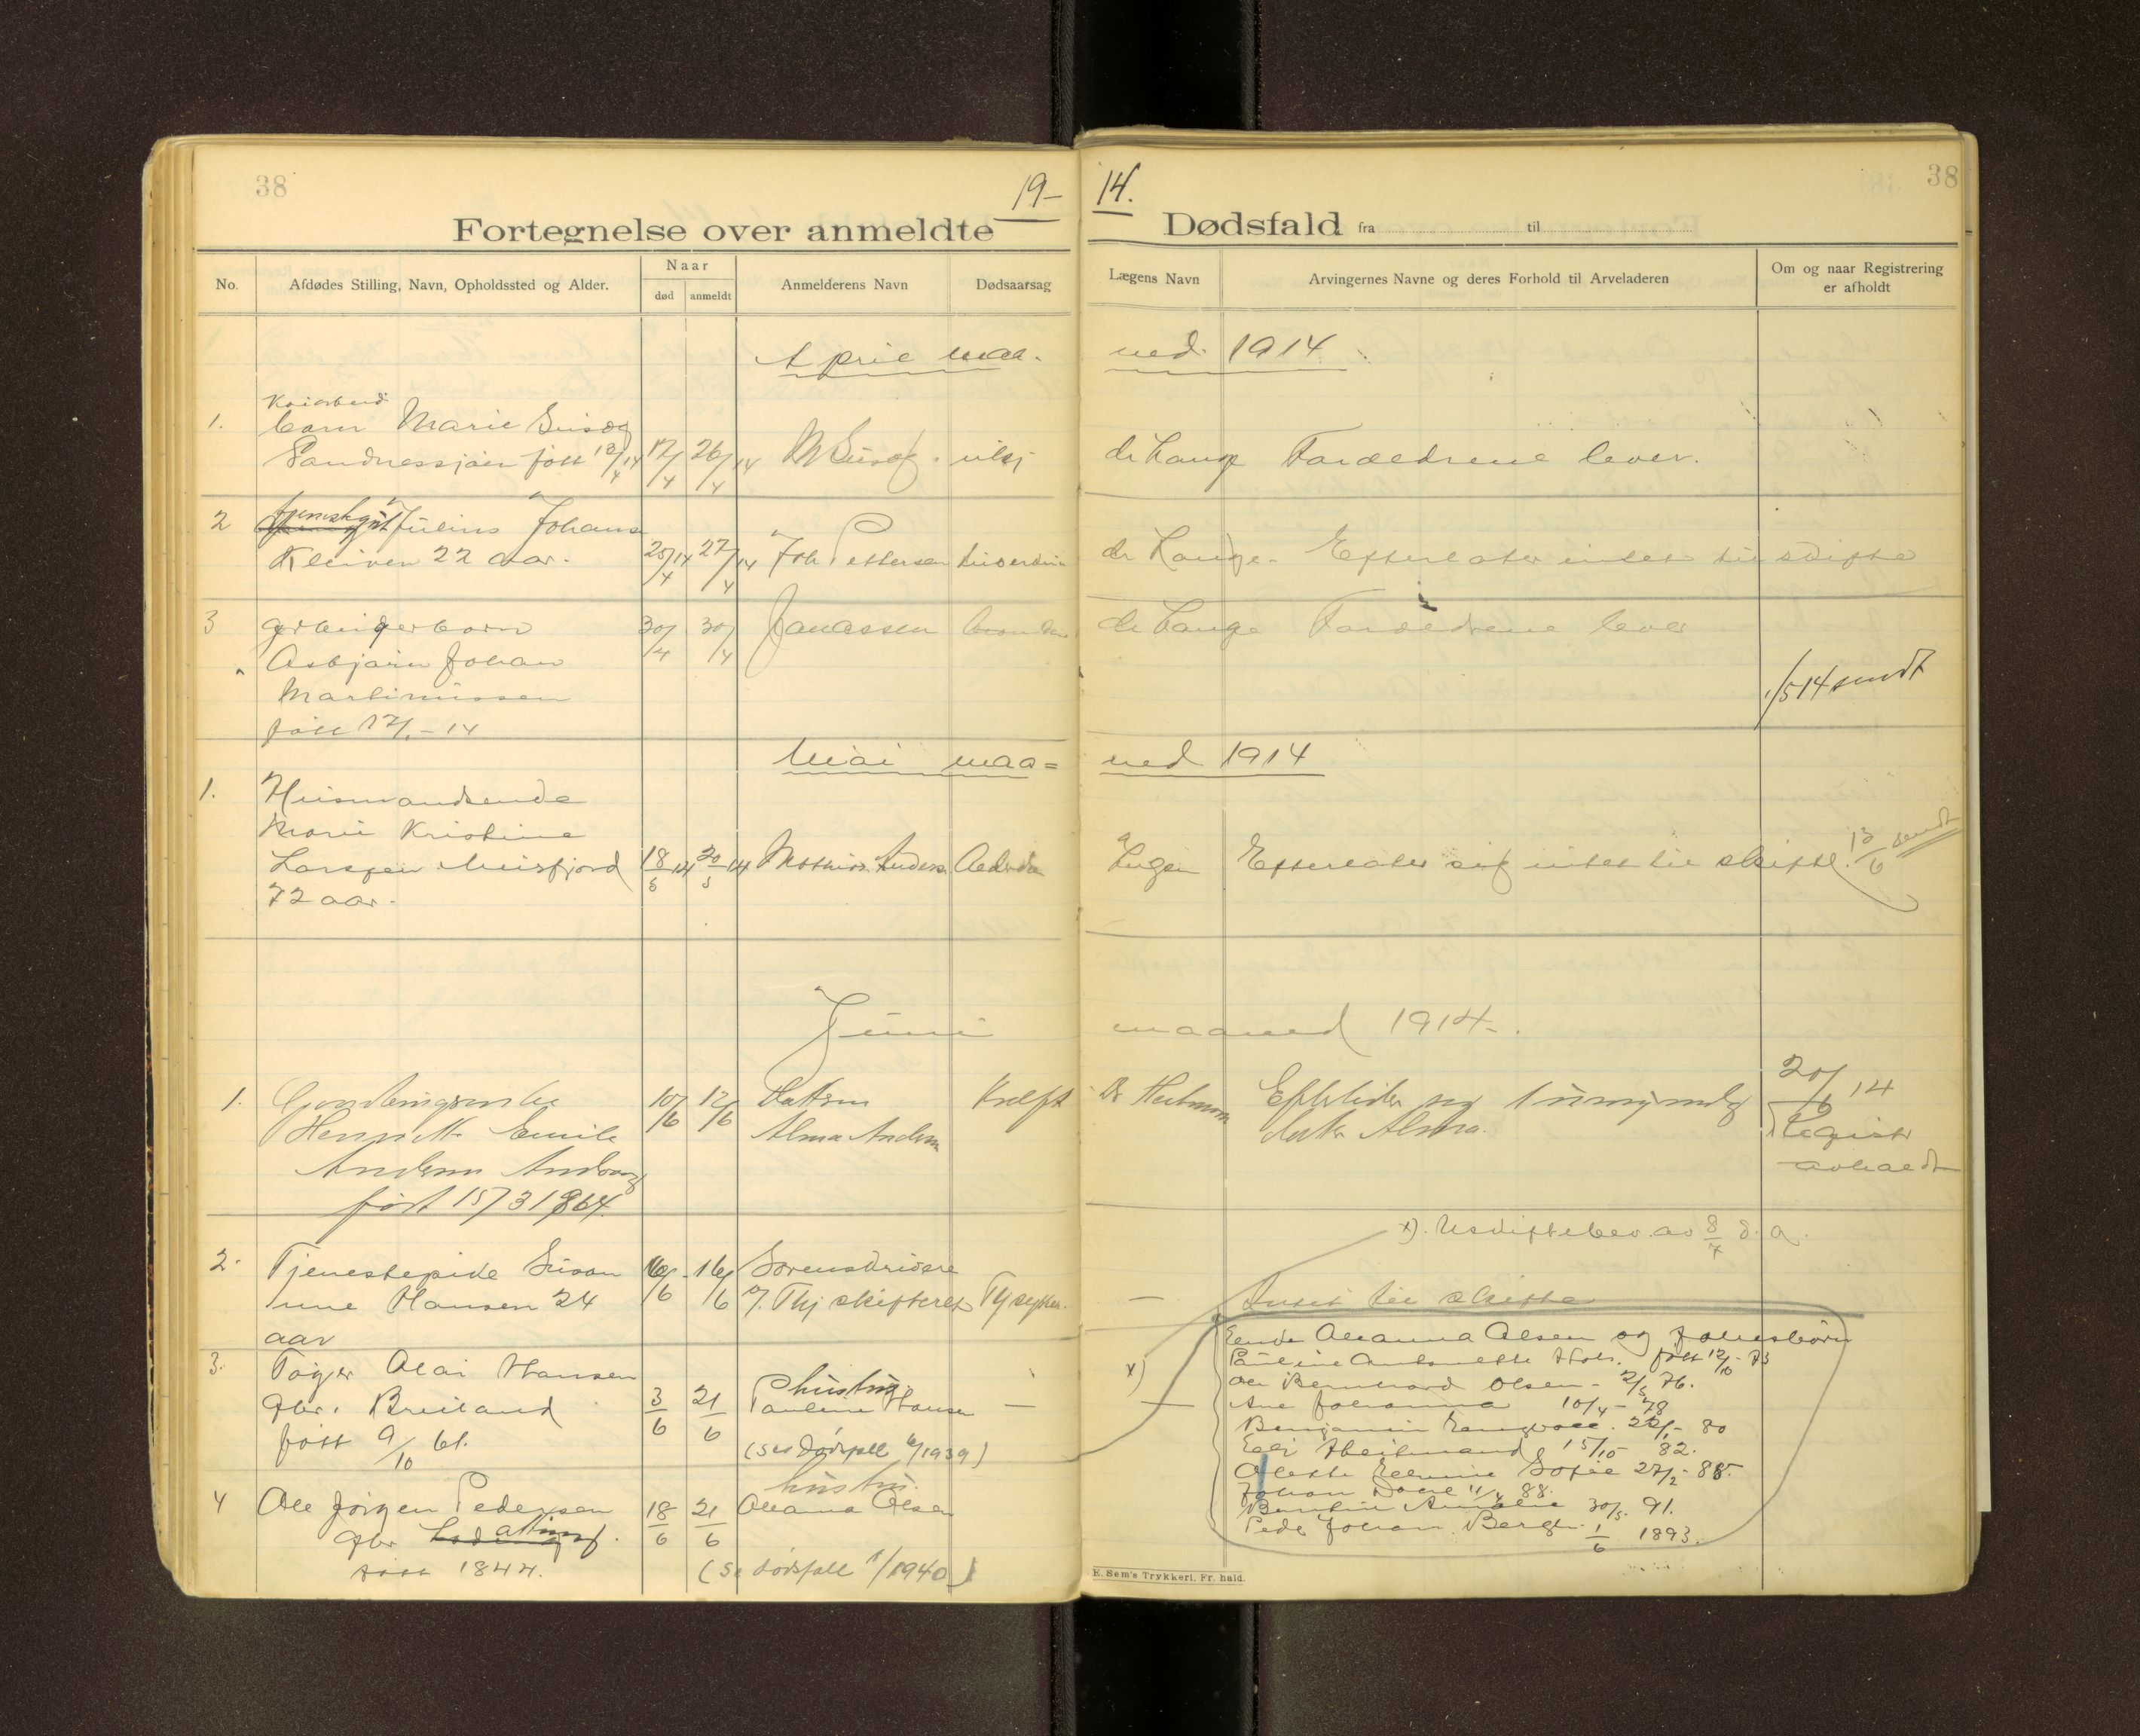 38
19-
14.
38
Fortegnelse over anmeldte
Dødsfald fra til
No.
Afdødes Stilling, Navn, Opholdssted og Alder.
Naar
død
anmeldt
Anmelderens Navn
Dødsaarsag
Lægens Navn
Arvingernes Navne og deres Forhold til Arveladeren
Om og naar Registrering
er afholdt
April maa-
ned 1914
1.
barn Marie
Sandnessjøen født 13/4 14
17/4
26/4 14
dr Lange Forældrene lever.
2
Julius Johans
Kleiven 22 aar.
25/4 14
27/4 14
Joh Pettersen
dr Lange. Efterlater intet til skifte
3
Asbjørn Johan
Martinussen
født 17/1-14
30/4
30/4
Janassen
dr Lange Forældrene lever
1/5 14 sendt
Mai maa=
ned 1914
1.
Husmandsenke
Marie Kristine
Larsen Meisfjord
72 aar.
18/5 14
20/5 14
Mathias Anders
Efterlater sig intet til skifte.
13/6 sendt
Juni
maaned 1914.
1.
Emilie
født 15/3 1864
10/6
12/6
Datteren
Alma Andersen
Kræft
Efterlater sig 1 umyndig
datter Alma.
20/6 14
Registr
avholdt
x). Uskiftebev. av 8/7 d. a.
2.
Tjenestepike Susan
ine Hansen 24
aar
16/6
16/6
Lorensdrivere
Intet til skifte
3.
Olai Hansen
gbr. Breiland
født 9/10 61.
3/6
21/6
hustru
Pauline Hansen
(Se dødsfall 6/1939)
x)
4
Ole Jørgen Pedersen
gbr
født 1844.
18/6
21/6
hustru.
Oleanna Olsen
(Se dødsfall 1/1940)
Enke Oleanna Olsen og følgesbørn
Pauline Antonette født 12/10-73
Ole Bernhard Olsen - 2/5 76.
Ane Johanna 10/4-78
Benjamin 22/1-80
15/10 82.
Sofie 27/2-85.
Johan 11/4 88.
Bentine Amalie 30/5. 91.
Peder Johan Berg 1/6 1893.
E. Sem's Trykkeri, Fr.hald.